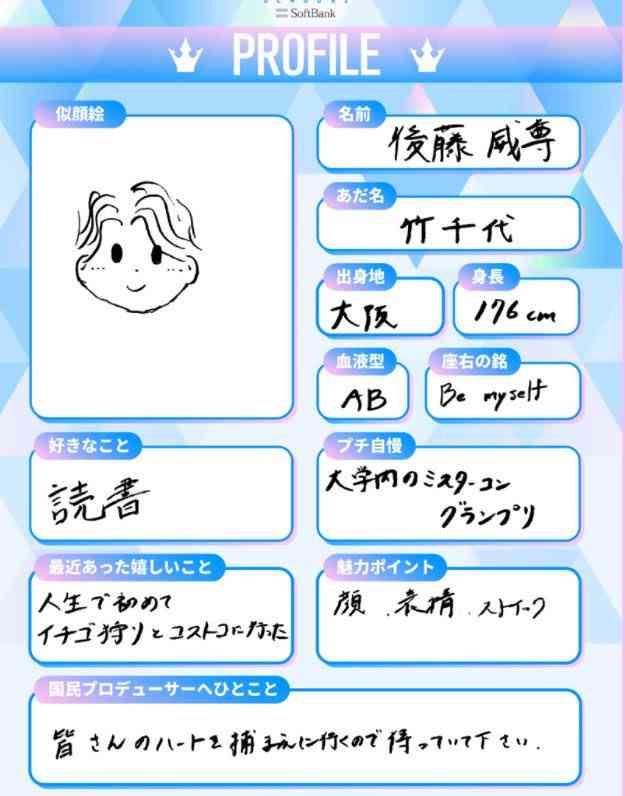 SoftBank
PROFILE
似顔絵
名前
後藤 威尊
あだ名
竹千代
出身地
大阪
身長
176cm
血液型
AB
座右の銘
Be myself
好きなこと
読書
プチ自慢
大学内のミスターコン
グランプリ
最近あった嬉しいこと
人生で初めて
イチゴ狩りとコストコに行った
魅力ポイント
顔、表情、ストイック
国民プロデューサーへひとこと
皆さんのハートを捕まえに行くので待っていて下さい.